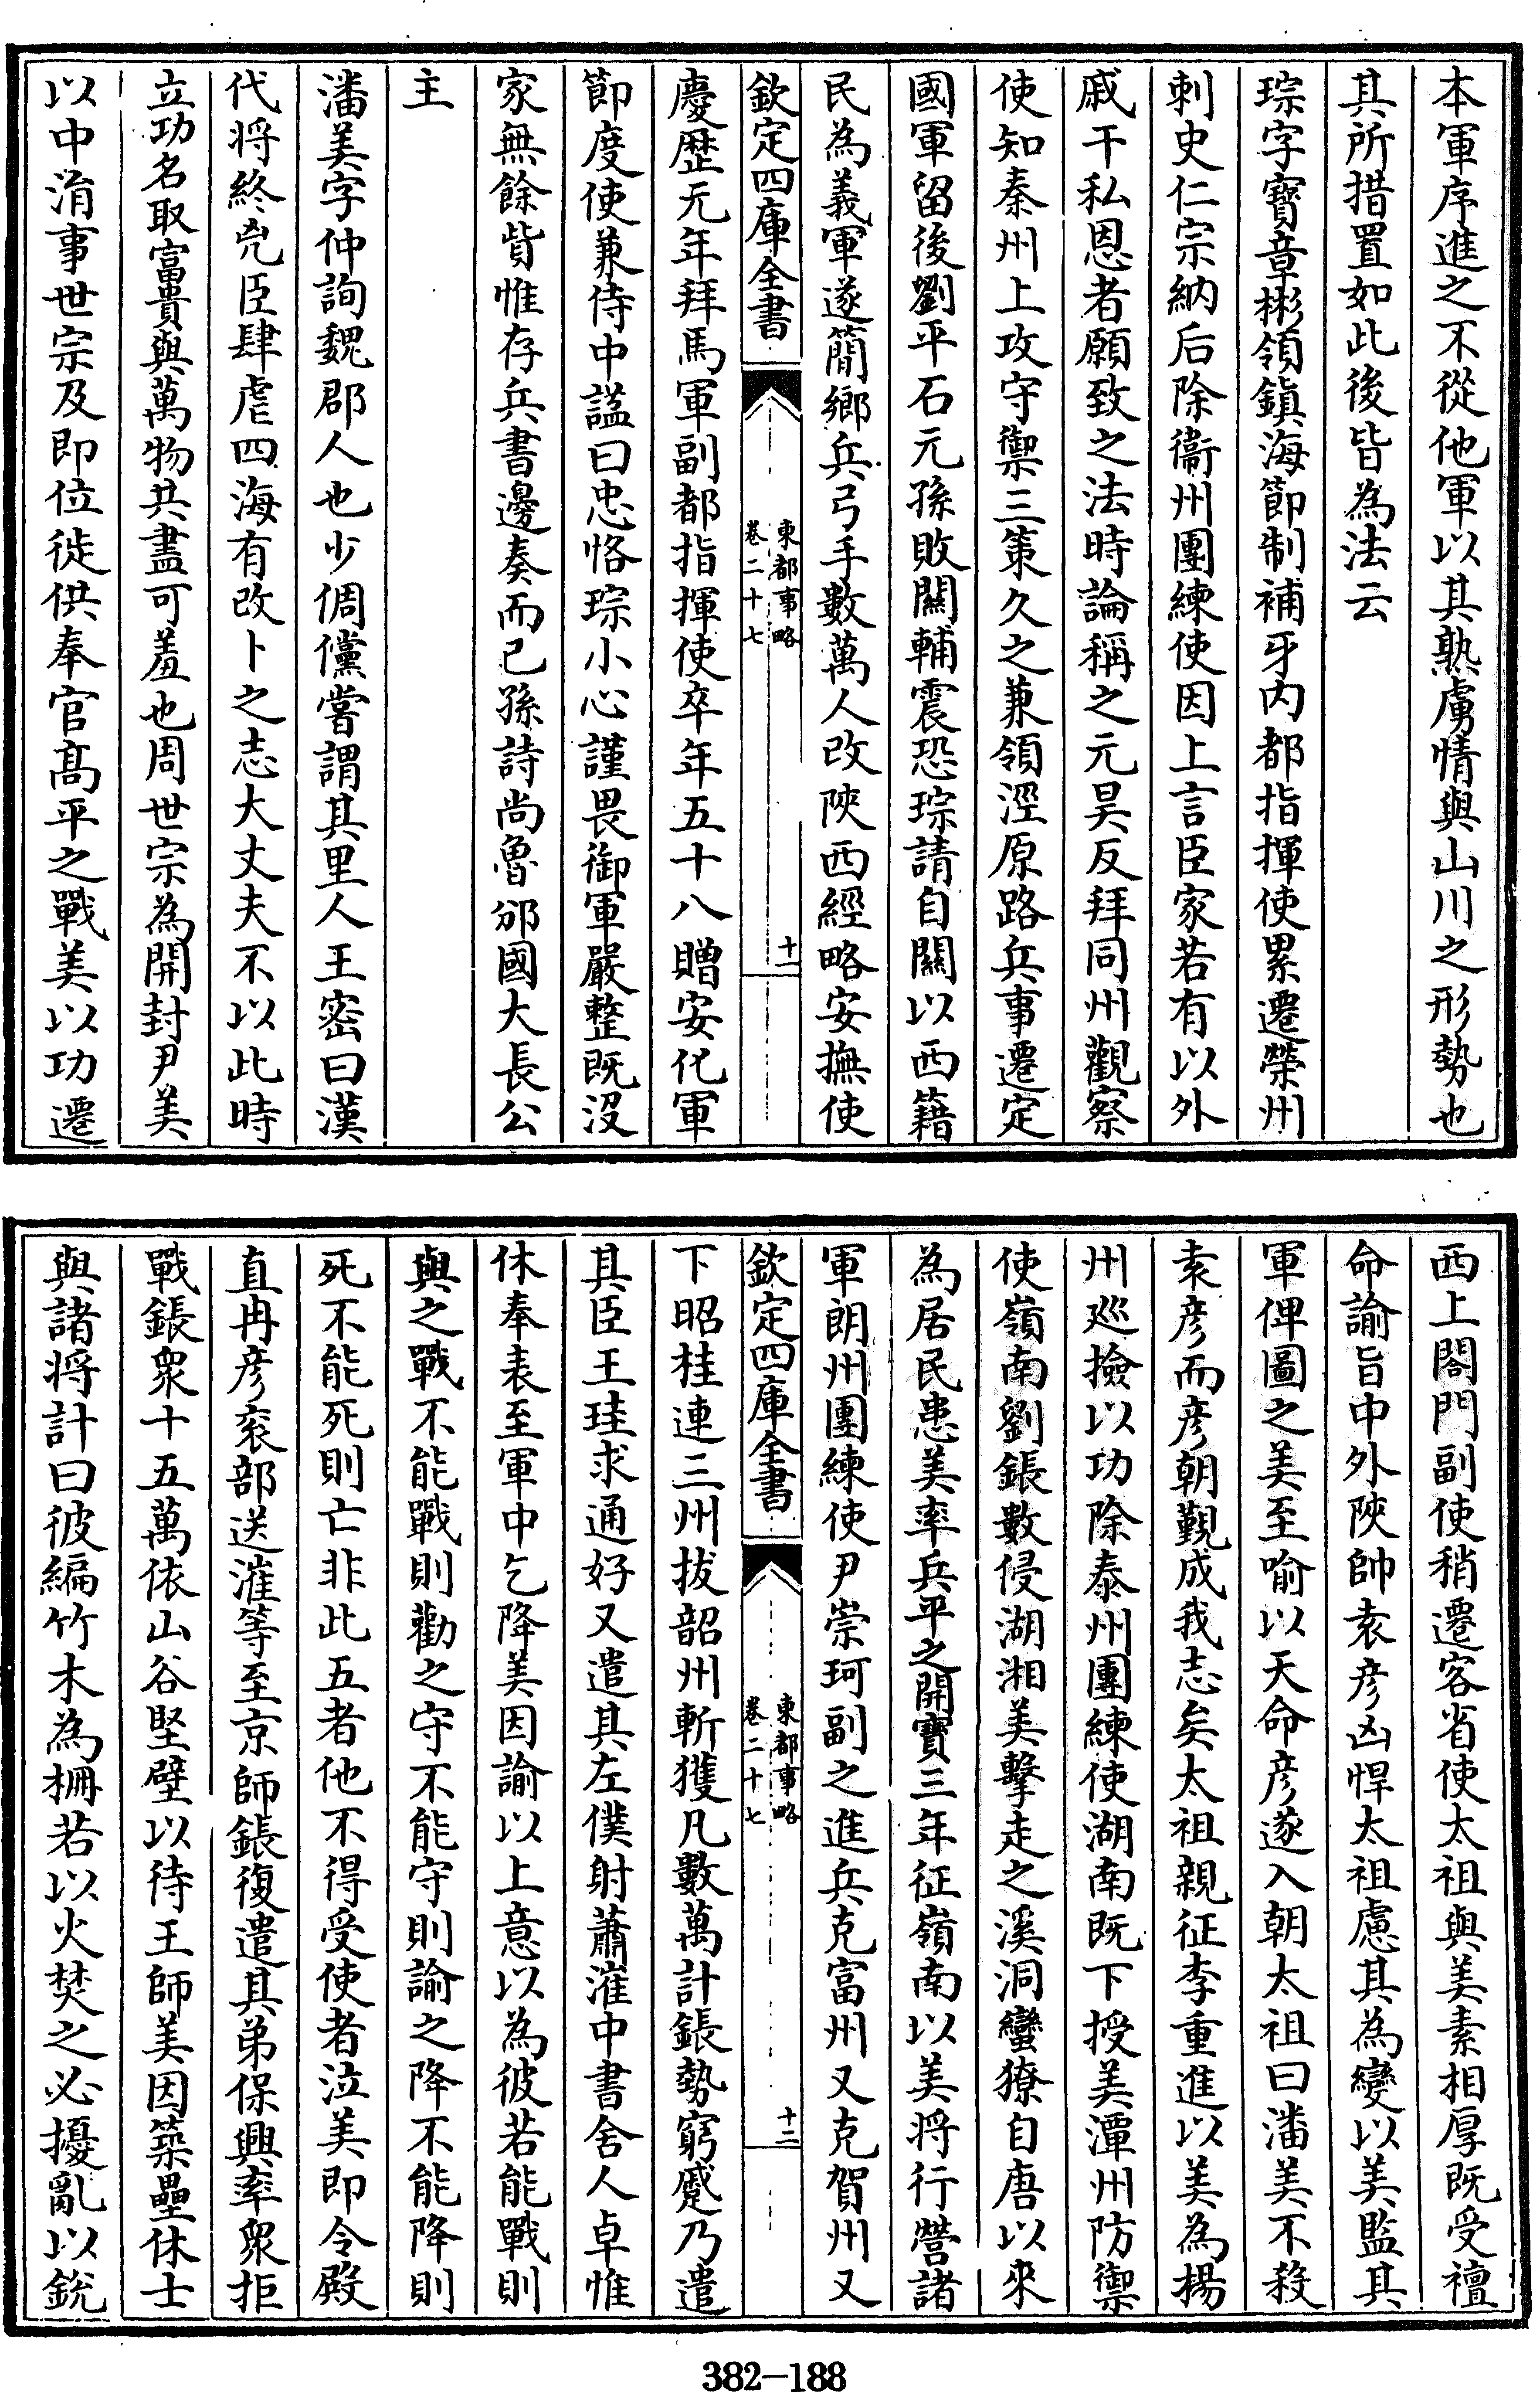 本軍序進之不從他軍以其熟虜情與山川之形勢也
其所措置如此後皆為法云
琮字寶章彬領鎮海節制補牙内都指揮使累遷榮州
刺史仁宗納后除衞州團練使因上言臣家若有以外
戚干私恩者願致之法時論稱之元昊反拜同州觀察
使知秦州上攻守禦三策久之兼領涇原路兵事遷定
國軍留後劉平石元孫敗關輔震恐琮請自關以西籍
民為義軍遂簡鄉兵弓手數萬人改陜西經略安撫使
欽定四庫全書
東都事略
卷二十七
十一
慶歴元年拜馬軍副都指揮使卒年五十八贈安化軍
節度使兼侍中諡曰忠恪琮小心謹畏御軍嚴整既沒
家無餘貲惟存兵書邊奏而已孫詩尚魯邠國大長公
主
潘美字仲詢魏郡人也少倜儻嘗謂其里人王密曰漢
代将終兇臣肆虐四海有改卜之志大丈夫不以此時
立功名取富貴與萬物共盡可羞也周世宗為開封尹美
以中涓事世宗及即位徙供奉官高平之戰美以功遷
西上閤門副使稍遷客省使太祖與美素相厚既受禪
命諭旨中外陜帥袁彦凶悍太祖慮其為變以美監其
軍俾圖之美至喻以天命彦遂入朝太祖曰潘美不殺
袁彦而彦朝覲成我志矣太祖親征李重進以美為揚
州巡撿以功除泰州團練使湖南既下授美潭州防禦
使嶺南劉鋹數侵湖湘美擊走之溪洞蠻獠自唐以來
為居民患美率兵平之開寶三年征嶺南以美将行營諸
軍朗州團練使尹崇珂副之進兵克富州又克賀州又
欽定四庫全書
東都事略
卷二十七
十二
下昭桂連三州拔韶州斬獲凡數萬計鋹勢窮蹙乃遣
其臣王珪求通好又遣其左僕射蕭漼中書舍人卓惟
休奉表至軍中乞降美因諭以上意以為彼若能戰則
與之戰不能戰則勸之守不能守則諭之降不能降則
死不能死則亡非此五者他不得受使者泣美即令殿
直冉彦衮部送漼等至京師鋹復遣其弟保興率衆拒
戰鋹衆十五萬依山谷堅壁以待王師美因築壘休士
與諸将計曰彼編竹木為栅若以火焚之必擾亂以銳
382—188